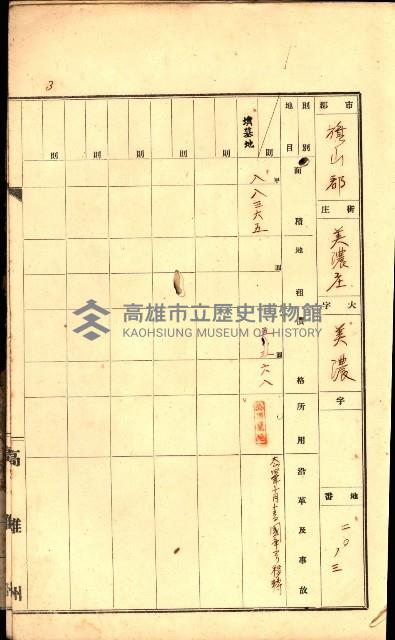 3
市郡 旗山郡
街庄 美濃庄
大字 美濃
字
地番 二〇ノ三
則別
地目
面積
地租
價格
所用
沿革及事故
則
墳墓地
甲
八八三六五
圓
六八
則
則
則
則
則
高雄州
高雄市立歷史博物館
KAOHSIUNG MUSEUM OF HISTORY